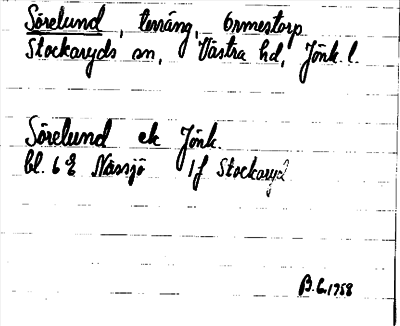 Sörelund, terräng, Ormestorp
Stockaryds sn, Västra hd, Jönk. l.
Sörelund ek Jönk.
bl. 6 E Nässjö 1f Stockaryd
B.G. 1958